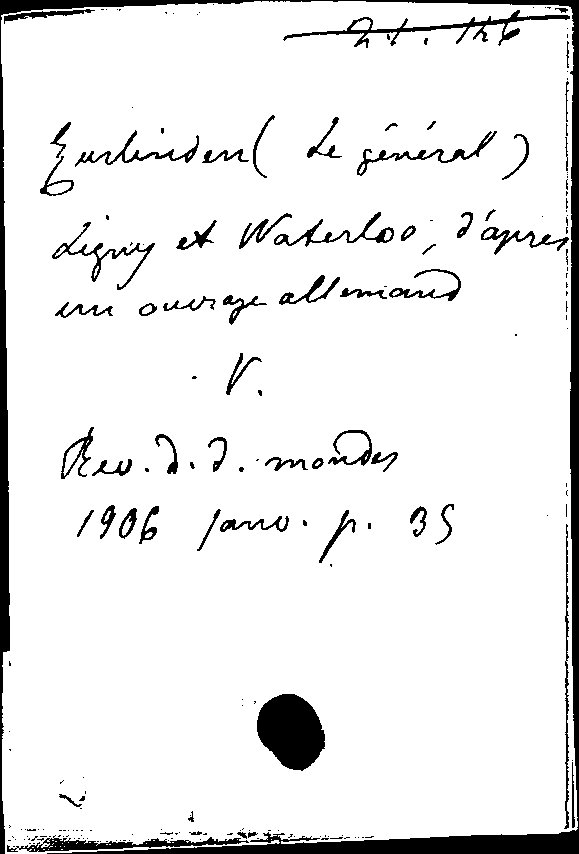 21.146
Zurlinden (Le général)
Ligny et Waterloo, d'après
un ouvrage allemand
V.
Rev. d. d. mondes
1906 janv. p. 35